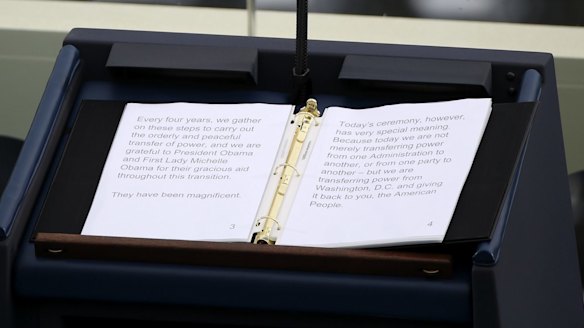 Every four years, we gather
on these steps to carry out
the orderly and peaceful
transfer of power, and we are
grateful to President Obama
and First Lady Michelle
Obama for their gracious aid
throughout this transition.
They have been magnificent.
3
Today's ceremony, however,
has very special meaning.
Because today we are not
merely transferring power
from one Administration to
another, or from one party to
another – but we are
transferring power from
Washington, D.C. and giving
it back to you, the American
People.
4